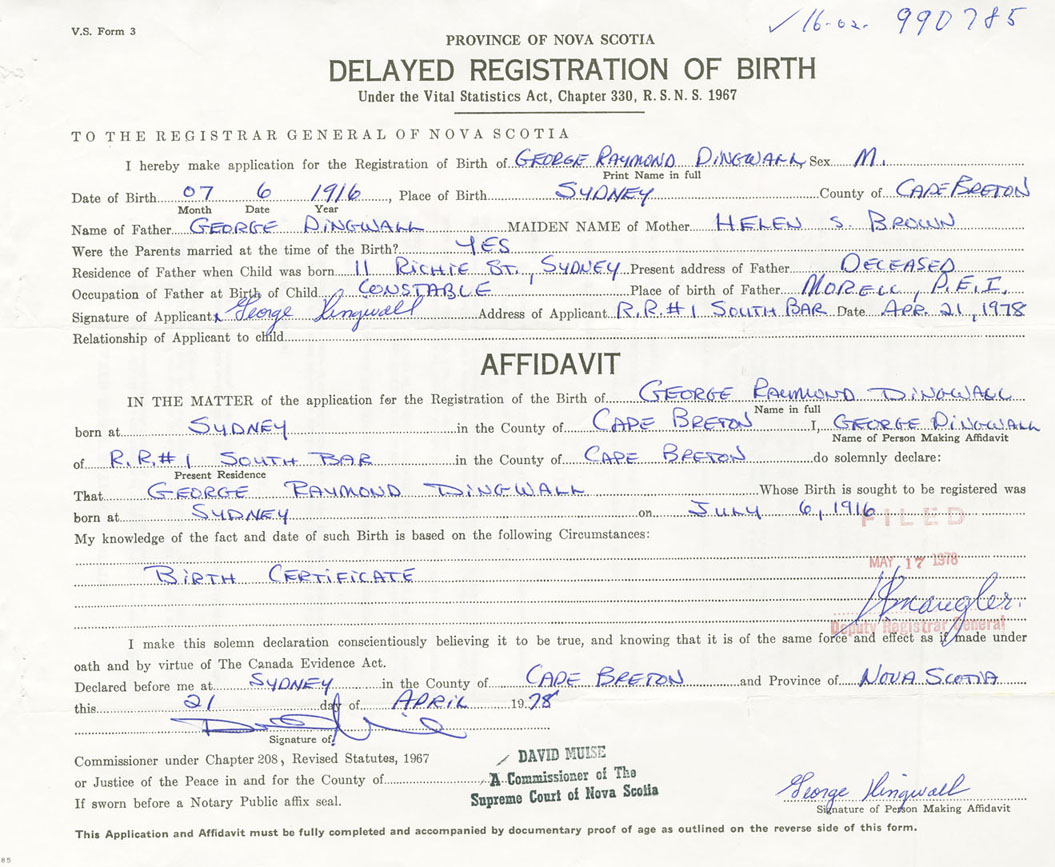 V.S. Form 3
✓ 16-02- 990785
PROVINCE OF NOVA SCOTIA
DELAYED REGISTRATION OF BIRTH
Under the Vital Statistics Act, Chapter 330, R.S.N.S. 1967
TO THE REGISTRAR GENERAL OF NOVA SCOTIA
I hereby make application for the Registration of Birth of GEORGE RAYMOND DINGWALL Sex M.
Print Name in full
Date of Birth 07 6 1916, Place of Birth SYDNEY County of CAPE BRETON
Month Date Year
Name of Father GEORGE DINGWALL MAIDEN NAME of Mother HELEN S. BROWN
Were the Parents married at the time of the Birth? YES
Residence of Father when Child was born 11 RICHIE ST., SYDNEY Present address of Father DECEASED
Occupation of Father at Birth of Child CONSTABLE Place of birth of Father MORELL, P.E.I.
Signature of Applicant x George Dingwall Address of Applicant R.R.#1 SOUTH BAR Date APR. 21, 1978
Relationship of Applicant to child
AFFIDAVIT
IN THE MATTER of the application for the Registration of the Birth of GEORGE RAYMOND DINGWALL
Name in full
born at SYDNEY in the County of CAPE BRETON I, GEORGE DINGWALL
Name of Person Making Affidavit
of R.R.#1 SOUTH BAR in the County of CAPE BRETON do solemnly declare:
Present Residence
That GEORGE RAYMOND DINGWALL Whose Birth is sought to be registered was
born at SYDNEY on JULY 6, 1916
FILED
My knowledge of the fact and date of such Birth is based on the following Circumstances:
MAY 17 1978
BIRTH CERTIFICATE
Deputy Registrar General
I make this solemn declaration conscientiously believing it to be true, and knowing that it is of the same force and effect as if made under
oath and by virtue of The Canada Evidence Act.
Declared before me at SYDNEY in the County of CAPE BRETON and Province of NOVA SCOTIA
this 21 day of APRIL 1978
Signature of
Commissioner under Chapter 208, Revised Statutes, 1967
or Justice of the Peace in and for the County of
If sworn before a Notary Public affix seal.
DAVID MUISE
A Commissioner of The
Supreme Court of Nova Scotia
George Dingwall
Signature of Person Making Affidavit
This Application and Affidavit must be fully completed and accompanied by documentary proof of age as outlined on the reverse side of this form.
85